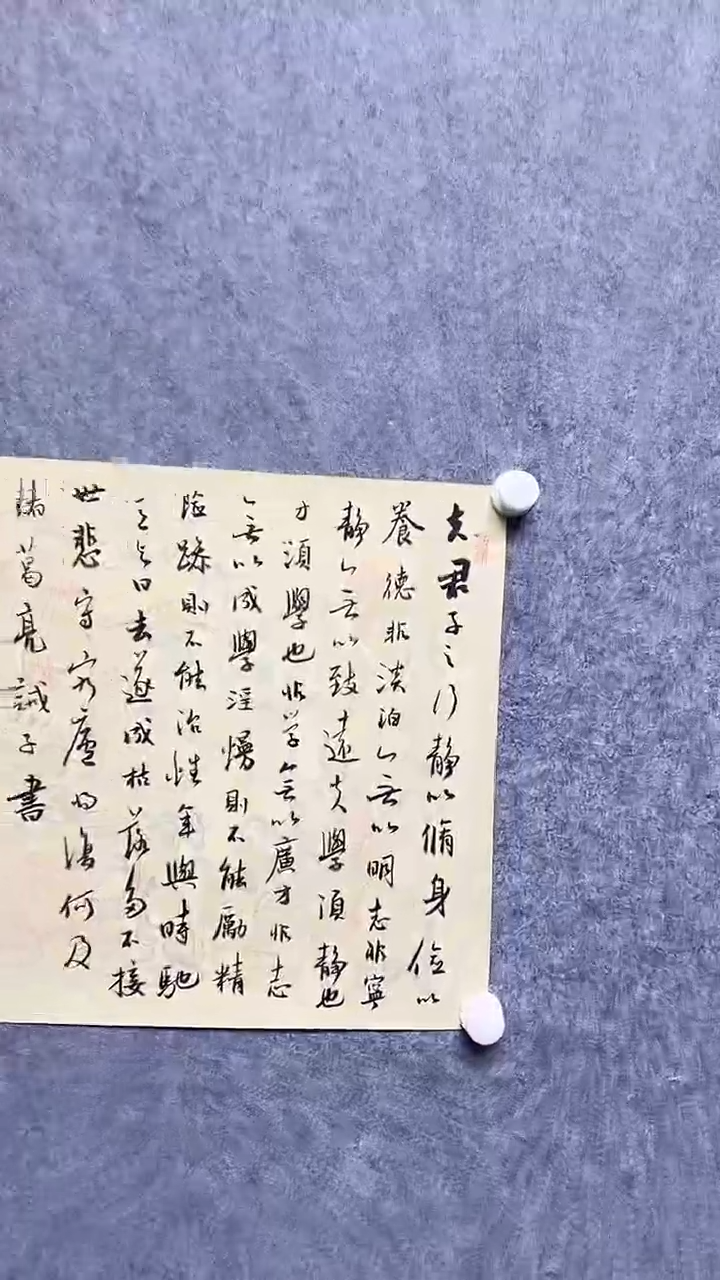 夫君子之行靜以脩身儉以
養德非淡泊無以明志非寧
靜無以致遠夫學須靜也
才須學也非学無以廣才非志
無以成學淫慢則不能勵精
險躁則不能治性年與時馳
意与日去遂成枯落多不接
世悲守窮廬將復何及
諸葛亮誡子書